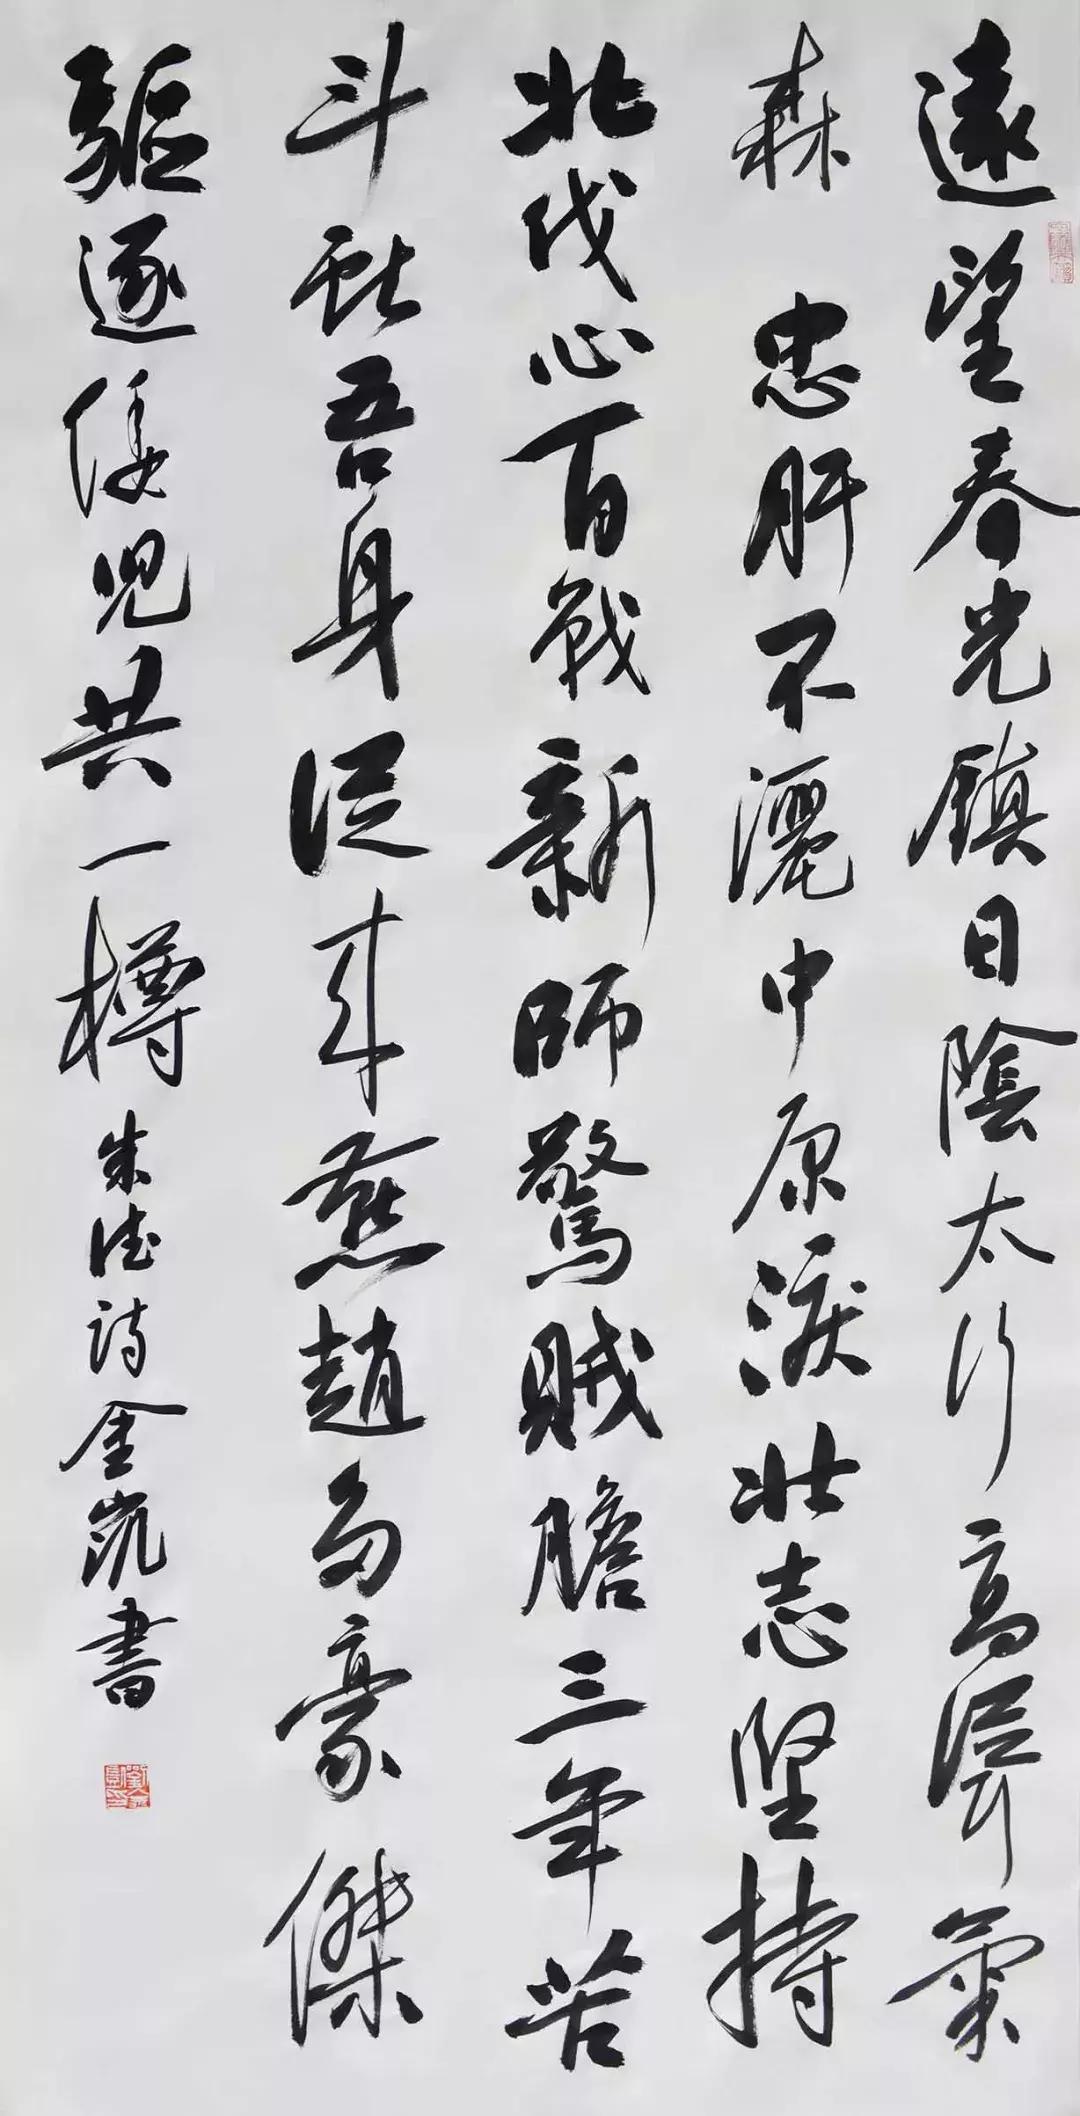 遠望春光鎮日陰太行高聳氣
森忠肝不灑中原淚壯志堅持
北伐心百戰新師驚賊膽三年苦
斗献吾身從来燕趙多豪傑
驅逐倭兒共一樽朱德詩金凱書